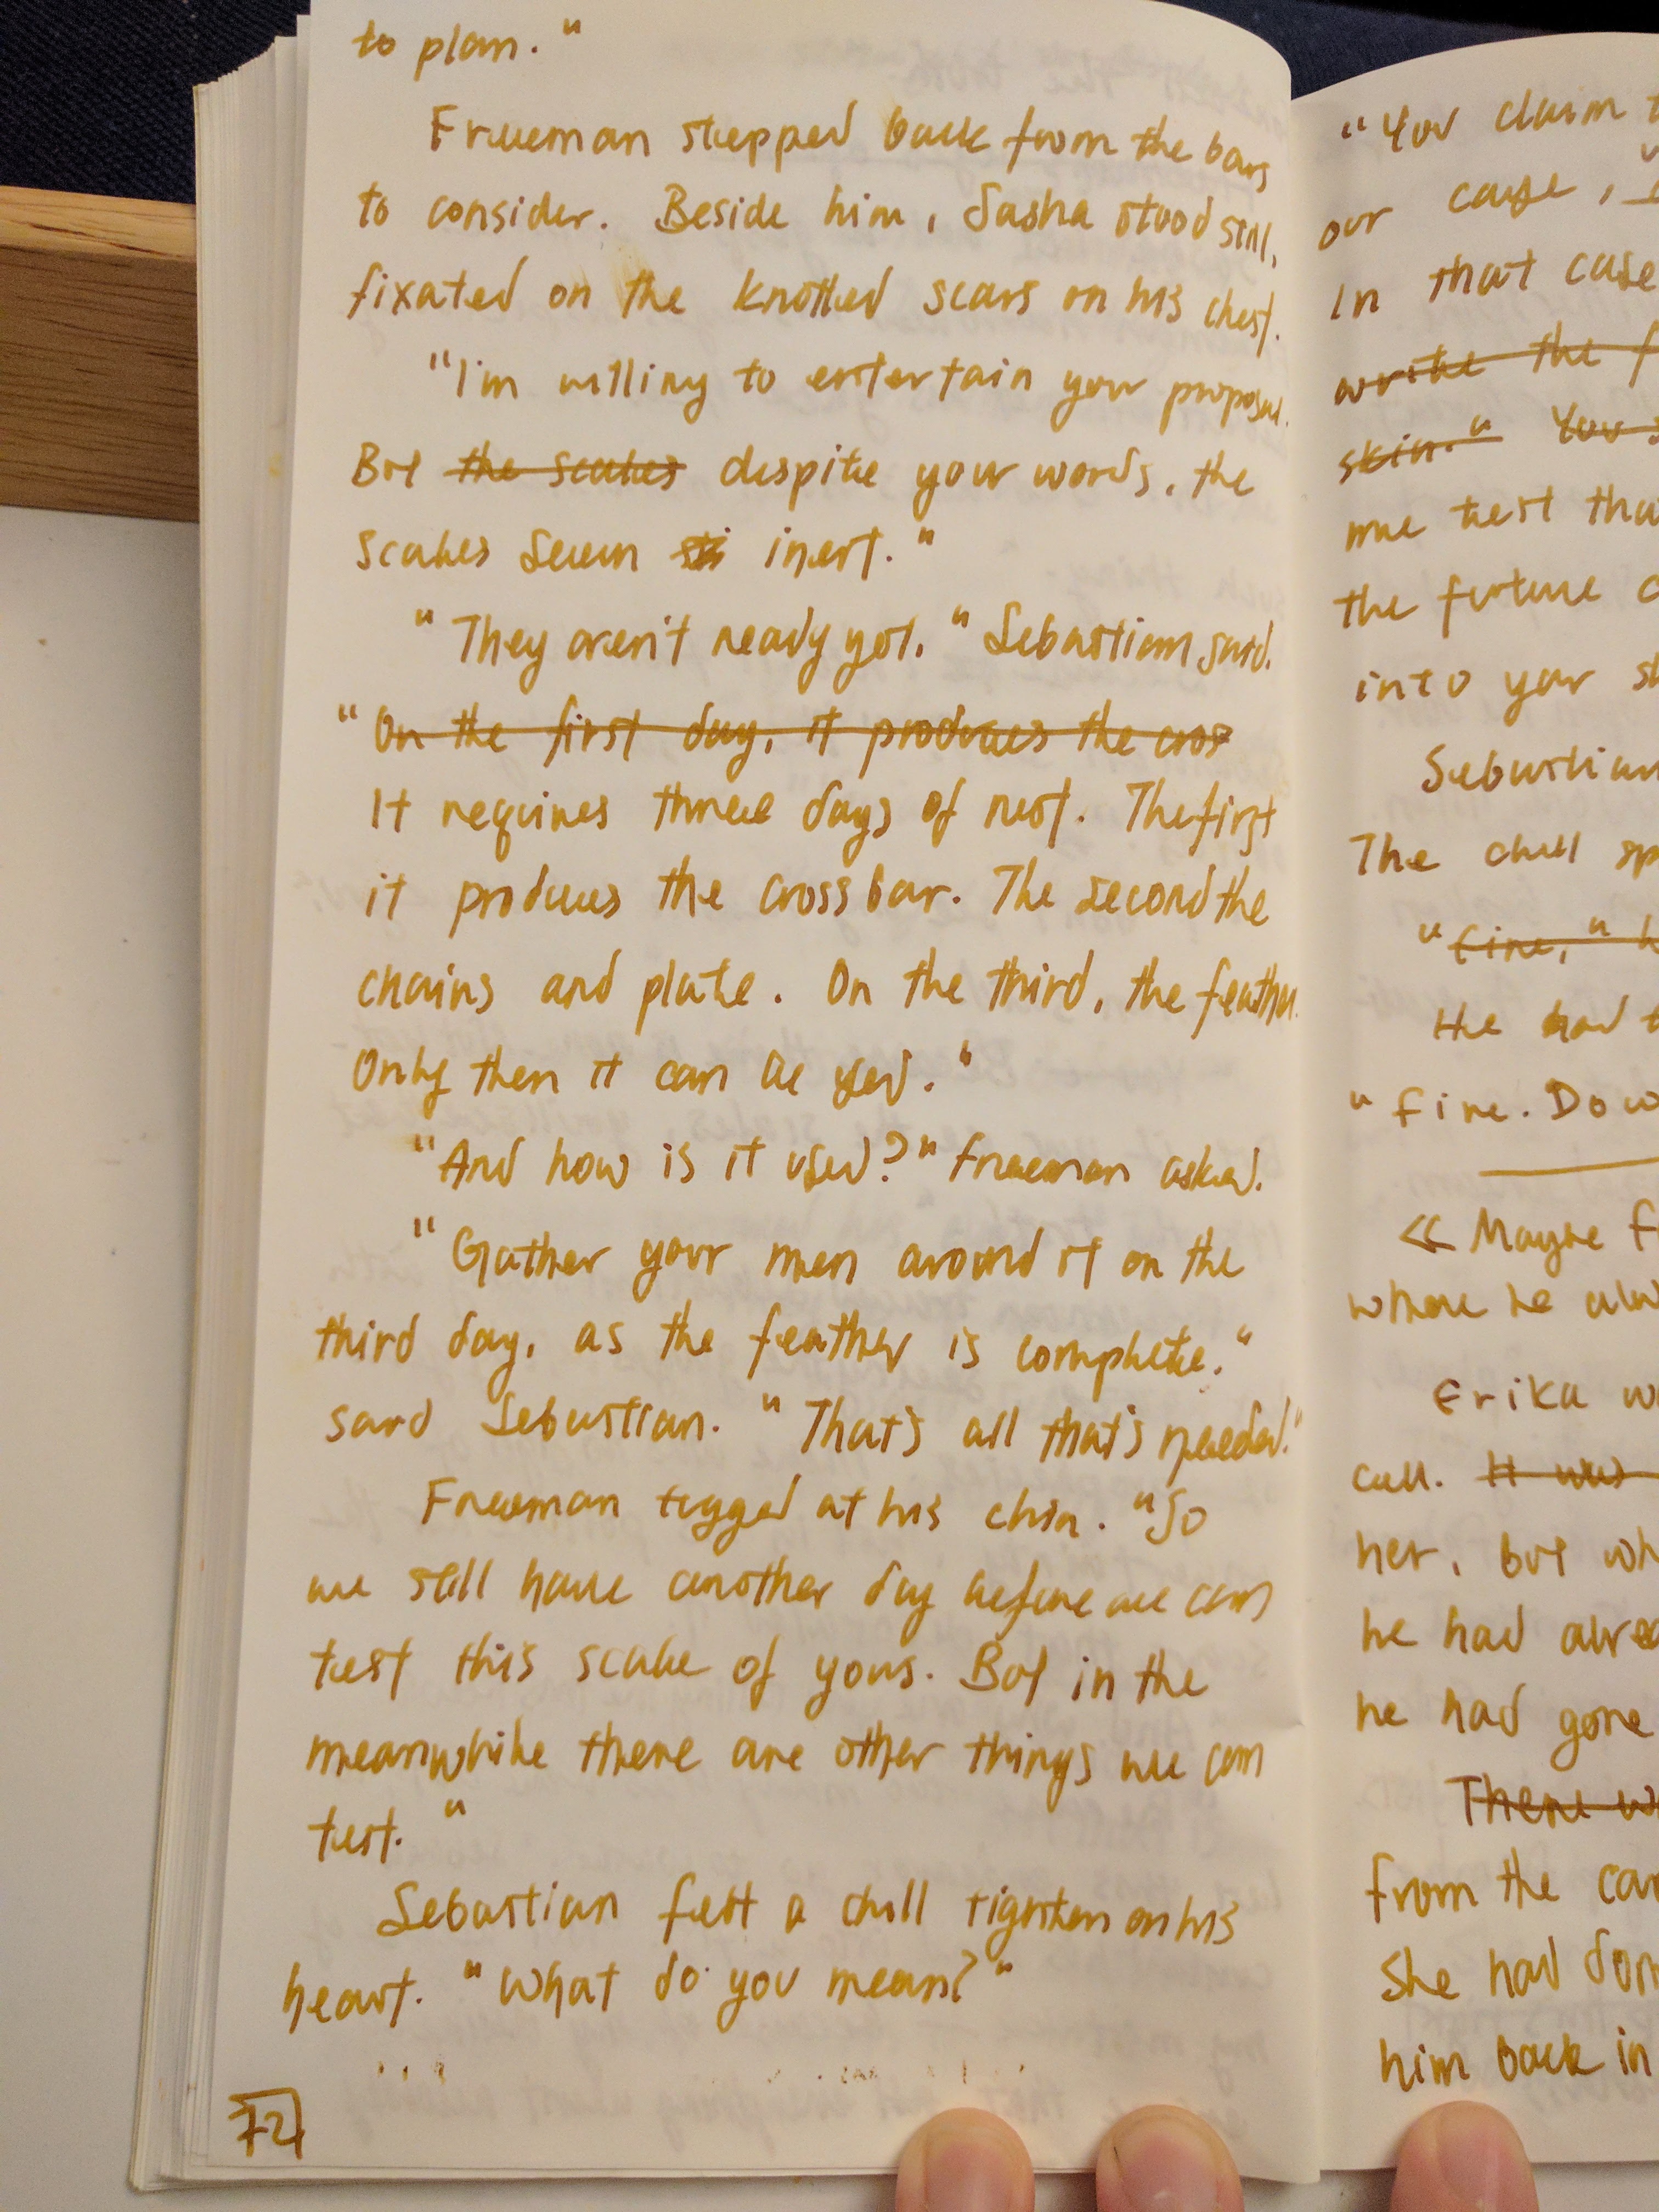 to plan."
Freeman stepped back from the bars
to consider. Beside him, Sasha stood still,
fixated on the knotted scars on his chest.
"I'm willing to entertain your proposal.
But the scales despite your words, the
scales seem sti inert."
"They aren't ready yet." Sebastian said.
"On the first day, it produces the cros
It requires three days of rest. The first
it produces the crossbar. The second the
chains and plate. On the third, the feather.
Only then it can be used."
"And how is it used?" Freeman asked.
"Gather your men around it on the
third day, as the feather is complete."
said Sebastian. "That's all that's needed."
Freeman tugged at his chin. "So
we still have another day before we can
test this scale of yours. But in the
meanwhile there are other things we can
test."
Sebastian felt a chill tighten on his
heart. "What do you mean?"
72
"You claim
our cause,
In that case
write the f
skin." You
me test tha
the future
into your
Sebastian
The chill sp
"fine," h
He had
"Fine. Do w
« Maybe
where he alw
Erika w
call. It was
her, but wh
he had alre
he had gone
There w
from the car
She had don
him back in